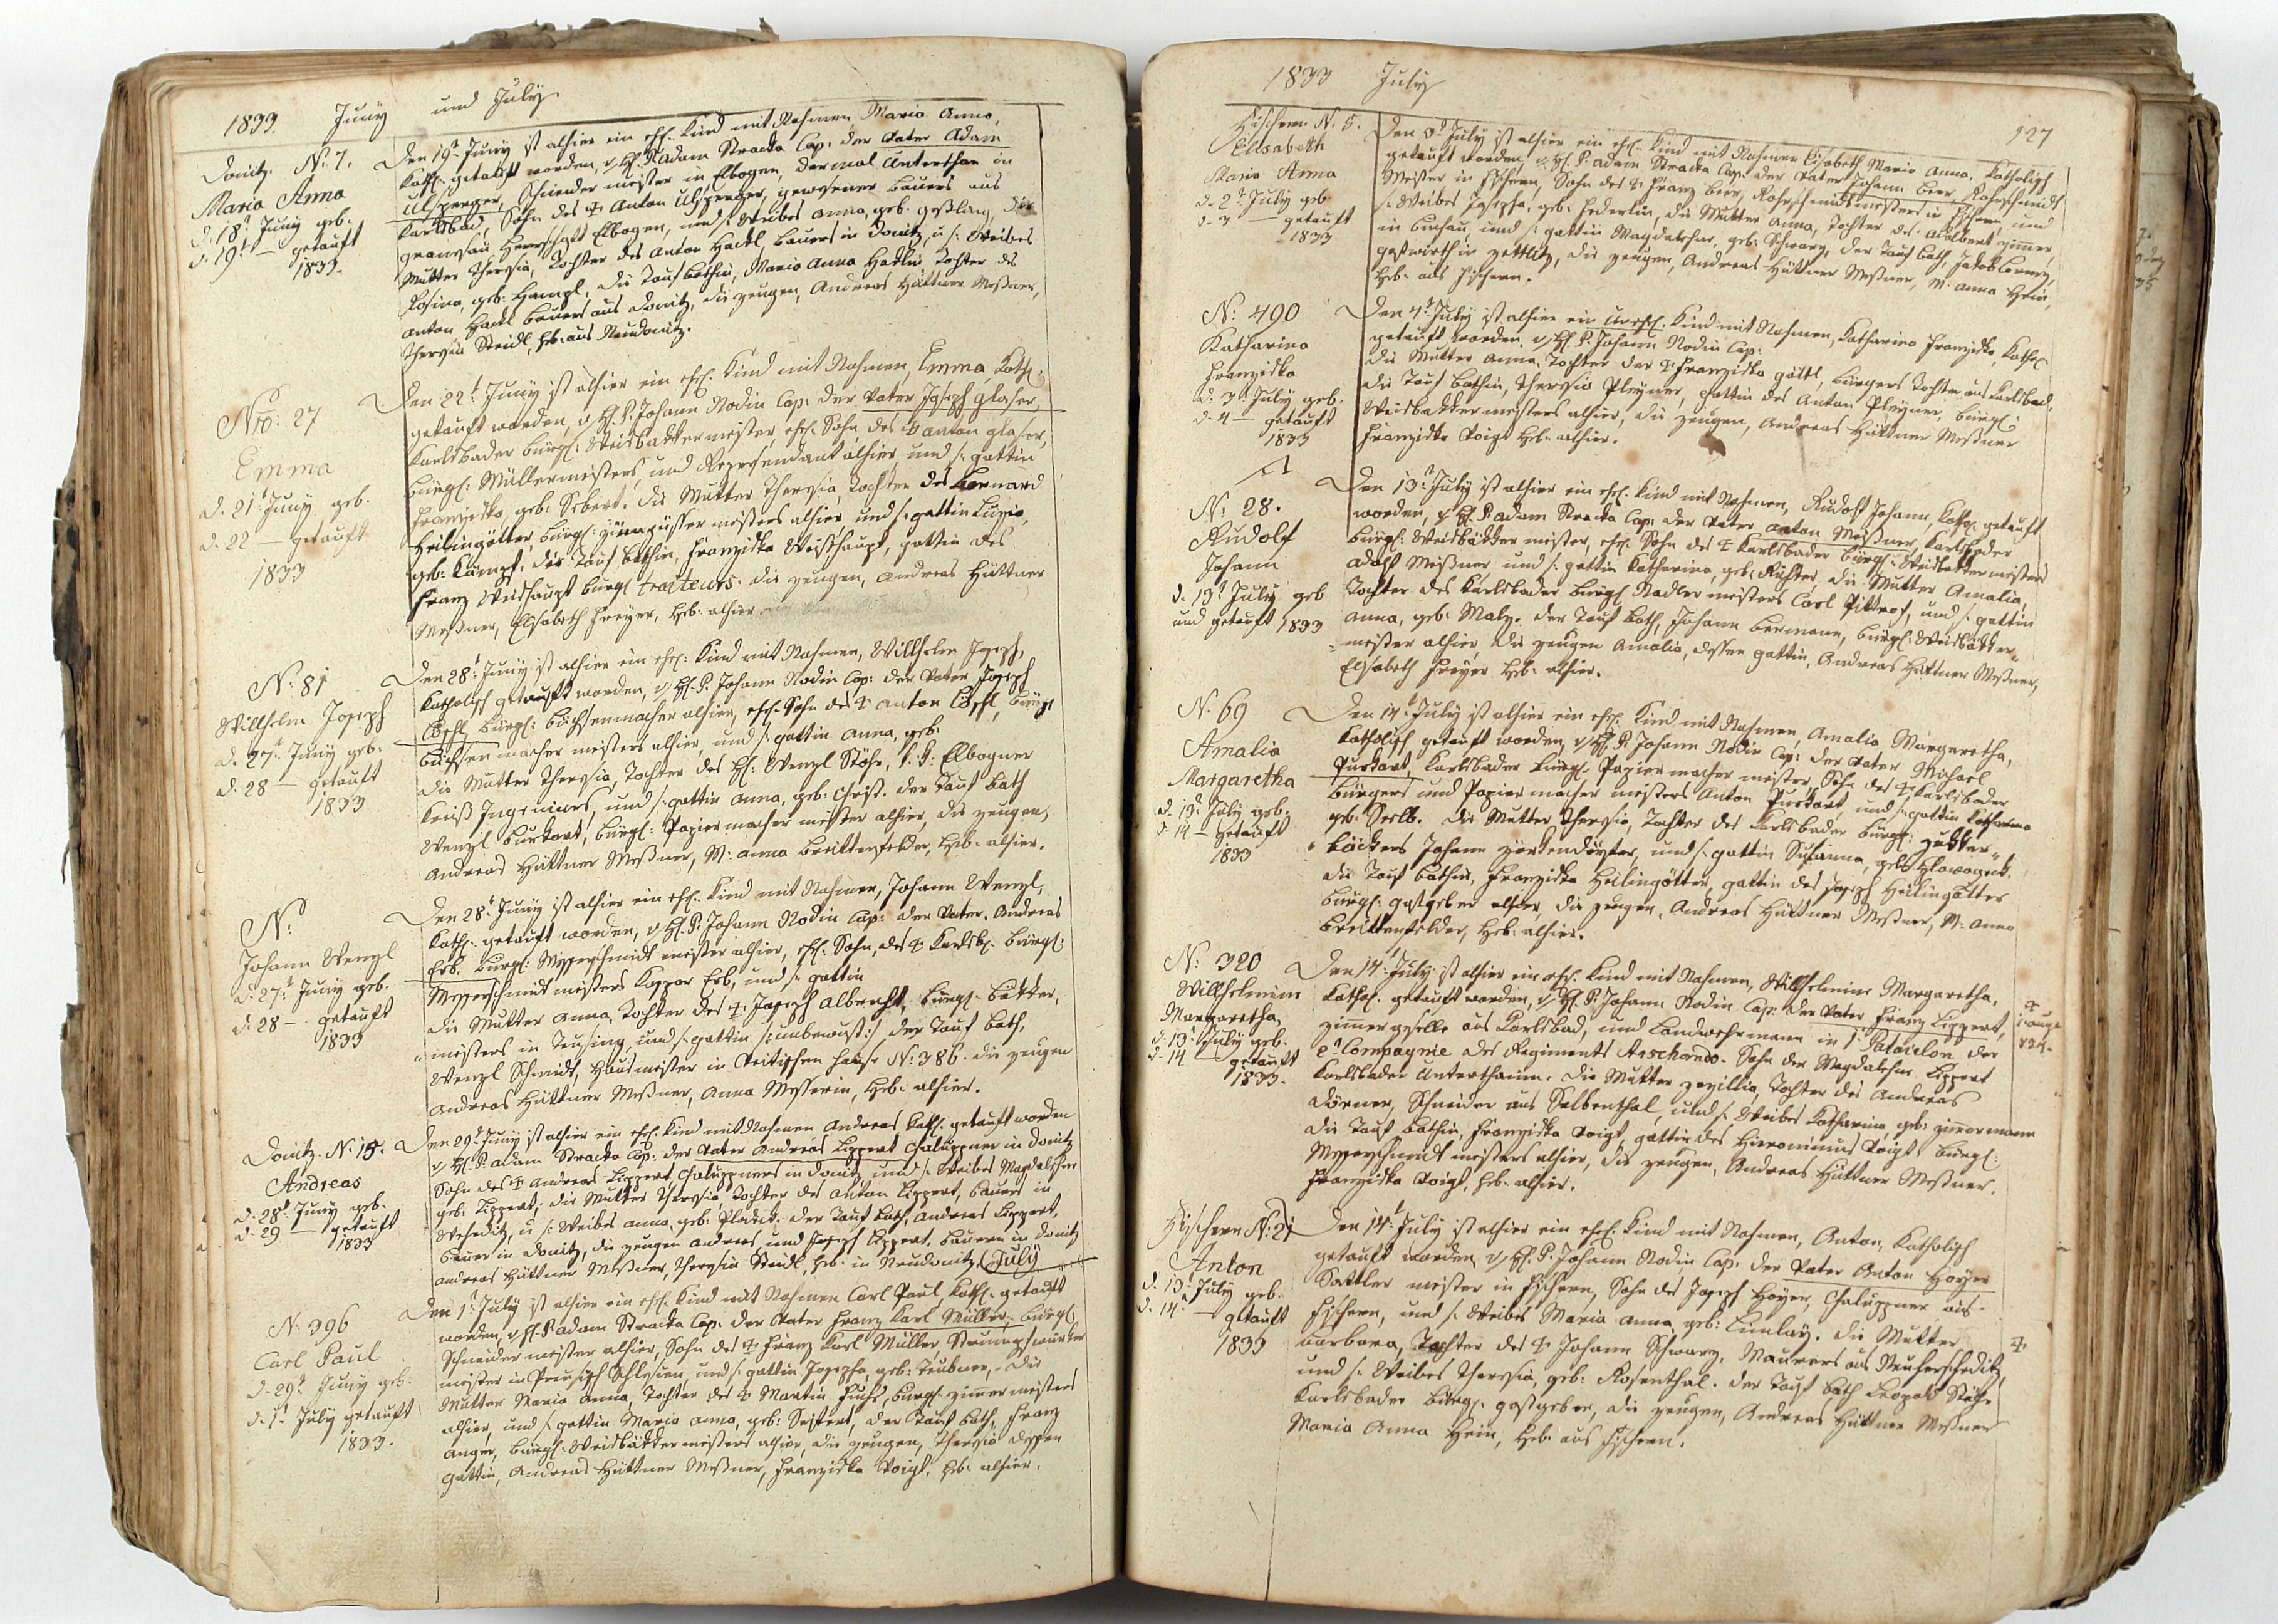 1833. Juny und July
Donitz. N. 7.
Maria Anna
d. 18t Juny geb.
d. 19t — getauft
1833.
Den 19t Juny ist alhier ein ehel. Kind mit Nahmen Maria Anna,
Kath. getauft worden, v H. P. Adam Stracka Cap: der Vater Adam
Ulsperger, Schneider meister in Elbogen, dermal Unterthan in
Karlsbad, Sohn des ┼ Anton Ulsperger, gewesener Bauers aus
Granesau Herrschaft Elbogen, und s. Weibes Anna, geb. Die
Mutter Theresia, Tochter des Anton Hackl, Bauers in Donitz, u s. Weibes
Rosina, geb: Hampl. die Taufbathin, Maria Anna Hacklin Tochter des
Anton Hackl Bauers aus Donitz, die Zeugen, Andreas Hüttner Meßner,
Theresia Steidl, Heb: aus Neudonitz.
Nro: 27
Emma
d. 21t Juny geb.
d. 22 — getauft
1833
Den 22t Juny ist alhier ein ehel. Kind mit Nahmen, Emma, Kath:
getauft worden, v H. P. Johann Nodin Cap: der Vater Joseph Glaser,
Karlsbader bürgl: Weisbäkkermeister, ehel. Sohn des ┼ Anton Glaser,
bürgl: Müllermeisters, und Representant alhier und s. gattin
Franziska, geb: Sebert. die Mutter Theresia, Tochter des Bernard
Heilingötter, bürgl: Zinngiesser meisters alhier, und s. gattin
geb: Kämpf. die Tauf bathin, Franziska Weisshaupt, gattin des
Franz Weishaupt bürgl traiteurs. die Zeugen, Andreas Hüttner
Meßner, Elisabeth Freyer, Heb: alhier
N: 81
Willhelm Joseph
d. 27t Juny geb.
d. 28 — getauft
1833
Den 28t Juny ist alhier ein ehel: Kind mit Nahmen, Willhelm Joseph,
Katholisch getauft worden, v H. P. Johann Nodin Cap: der Vater Joseph
Löschl bürgl: Büchsenmacher alhier, ehel. Sohn des ┼ Anton Löschl, bürgl
büchsenmacher meisters alhier, und s. gattin Anna, geb:
die Mutter Theresia, Tochter des H: Wenzl Stöhr, k. k: Elbogner
Kreiß Ingenieurs, und s. gattin Anna, geb: Christ. der Tauf bath
Wenzl Purkart, bürgl: Papiermacher meister alhier, die Zeugen,
Andreas Hüttner Meßner, M: Anna Breitenfelder, Heb: alhier.
N:
Johann Wenzl
d: 27t Juny geb.
d: 28 — getauft
1833
Den 28t Juny ist alhier ein ehel. Kind mit Nahmen, Johann Wenzl,
Kath: getauft worden, v H. P. Johann Nodin Cap: der Vater, Andreas
Erb, bürgl: Messerschmidt meister alhier, ehel: Sohn, des ┼ Karlsb. bürgl:
Messerschmidt meisters Kaspar Erb, und s. gattin
die Mutter Anna, Tochter des ┼ Joseph Albrecht, bürgl. Bäkker,
meisters in Teusing, und s. gattin /: unbewust :/ der Tauf bath,
Wenzl Schmidt, Hausmeister in Veitischen Hause N: 386. die Zeugen
Andreas Hüttner Meßner, Anna Messerin, Heb: alhier.
Donitz. N. 18.
Andreas
d. 28t Juny geb.
d. 29 — getauft
1833
Den 29t Juny ist alhier ein ehel. Kind mit Nahmen Andreas Kath. getauft worden
v H. P. Adam Stracka Cap: der Vater Andreas Lippert Chaluppner in Donitz
Sohn des ┼ Andreas Lippert, Chaluppners in Donitz, und s. Weibes Magdalena
geb: Lippert, die Mutter Theresia Tochter des Anton Lippert, Bauers in
Weheditz, u s. Weibes Anna, geb: Der Tauf bath, Andreas Lippert,
Bauer in Donitz, die Zeugen Andreas und Joseph Lippert, Bauern in Donitz
Andreas Hüttner Meßner, Theresia Steidl, Heb. in Neudonitz. July
N. 396
Carl Paul
d. 29t Juny geb:
d. 1t July getauft
1833.
Den 1t July ist alhier ein ehel. Kind mit Nahmen Carl Paul, Kath. getauft
worden, v H. P. Adam Stracka Cap: der Vater Franz Karl Müller, bürgl
Schneider meister alhier, Sohn des ┼ Franz Karl Müller, Strumpfwürker
meister in Preusisch Schlesien, und s. gattin Josepha, geb: Teubner, Die
Mutter Maria Anna, Tochter des ┼ Martin Fuchs, bürgl. Zimermeisters
alhier, und s. gattin Maria Anna, geb: Seifert, der Tauf bath, Franz
Anger, bürgl: Weisbäkkermeisters alhier, die Zeugen, Theresia dessen
gattin, Andreas Hüttner Meßner, Franziska Voigt, Heb: alhier.
1833 July
127
Fischern N. 5.
Elisabeth
Maria Anna
d. 2t July geb
d. 3 — getauft
1833
Den 3t July ist alhier ein ehel. Kind mit Nahmen Elisabeth Maria Anna, Katholisch
getauft worden, v H. P. Adam Stracka Cap: der Vater Johann Beer, Rohrschmidt
Meister in Fischern, Sohn des ┼ Franz Beer, Rohrschmidtmeisters in Fischern und
s. Weibes Josepha, geb. Federlin, die Mutter Anna, Tochter des Adalbert Zimer,
in Buchau und s: gattin Magdalena, geb: Schwarz, der Tauf bath, Jakob Lorenz,
gastwirth in Zettlitz, die Zeugen, Andreas Hüttner Meßner, M. Anna Hein,
Heb: aus Fischern.
N: 490
Katharina
Franziska
d. 3t July geb.
d. 4 — getauft
1833
Den 4t July ist alhier ein unehel. Kind mit Nahmen, Katharina Franziska, Kathol
getauft worden, v H. P. Johann Nodin Cap.
die Mutter Anna, Tochter der ┼ Franziska Göttl, Bürgers Tochter aus Karlsbad,
die Tauf bathin, Theresia Pleyner, gattin des Anton Pleyner, bürgl:
Weisbäkkermeisters alhier, die Zeugen, Andreas Hüttner Meßner
Franziska Voigt Heb: alhier.
N: 28.
Rudolf
Johann
d. 13t July geb
und getauft 1833
Den 13t July ist alhier ein ehel. Kind mit Nahmen, Rudolf Johann, Kath. getauft
worden, v H. P. Adam Stracka Cap: der Vater Anton Meßner, Karlsbader
bürgl: Weisbäkker meister, ehel. Sohn des ┼ Karlsbader bürgl: Weisbäkkermeisters
Adolf Meßner und s. gattin Katharina, geb: Richter, die Mutter Amalia,
Tochter des Karlsbader bürgl Nadler meisters Carl Pittrof, und s. gattin
Anna, geb: Maly. der Tauf bath, Johann Bermann, bürgl: Weisbäkker-
meister alhier, die Zeugen Amalia, dessen gattin, Andreas Hüttner Meßner,
Elisabeth Freyer Heb: alhier.
N. 69
Amalia
Margaretha
d. 13t July geb.
d. 14 — getauft
1833
Den 14t July ist alhier ein ehel. Kind mit Nahmen, Amalia Margaretha,
Katholisch getauft worden, v H. P. Johann Nodin Cap: der Vater Michael
Purkart, Karlsbader bürgl: Papiermacher meister, Sohn des ┼ Karlsbader
Bürgers und Papiermacher meisters Anton Purkart, und s. gattin Katharina
geb: die Mutter Theresia, Tochter des Karlsbader bürgl: Zukker-
bäckers Johann Zörkendörfer, und s. gattin Susanna, geb:
die Tauf bathin, Franziska Heilingötter, gattin des Joseph Heilingötter
bürgl: gastgeber alhier, die Zeugen, Andreas Hüttner Meßner, M: Anna
Breitenfelder, Heb: alhier.
N: 320
Willhelmine
Margaretha,
d. 13t July geb.
d. 14 — getauft
1833.
Den 14t July ist alhier ein ehel. Kind mit Nahmen, Willhelmine Margaretha,
Kathol. getauft worden, v H. P. Johann Nodin Cap: der Vater Franz Lippert,
Zimergeselle aus Karlsbad, und Landwehrmann in 1t Bataielon der
Compagnie des Regiments Sohn der Magdalena Lippert
Karlsbader Unterthanin. die Mutter Zezillia, Tochter des Andreas
Dörner, Schneider aus Salbenthal, und s. Weibes Katharina, geb: Zimermann
die Tauf bathin, Franziska Voigt, gattin des Hieronimus Voigt bürgl:
Messerschmidt meisters alhier, die Zeugen, Andreas Hüttner Meßner,
Franziska Voigt, Heb. alhier.
Fischern N. 21
Anton
d. 13t July geb.
d. 14t — getauft
1833
Den 14t July ist alhier ein ehel. Kind mit Nahmen, Anton, Katholisch
getauft worden, v H. P. Johann Nodin Cap. der Vater Anton Hoyer
Sattler meister in Fischern, Sohn des Joseph Hoyer, Chaluppner aus
Fischern, und s. Weibes Maria Anna, geb: die Mutter
Barbara, Tochter des ┼ Johann Schwarz, Maurers aus
und s. Weibes Theresia, geb: Rosenthal. der Tauf bath Leopold Stöhr
Karlsbader bürgl. gastgeber, die Zeugen, Andreas Hüttner Meßner
Maria Anna Hein, Heb: aus Fischern.